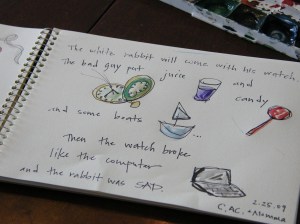 The white rabbit will come with his watch
The bad guy put juice and
candy
and some boats ...
Then the watch broke
like the computer
and the rabbit was SAD.
2.25.09
C, AC. + Momma